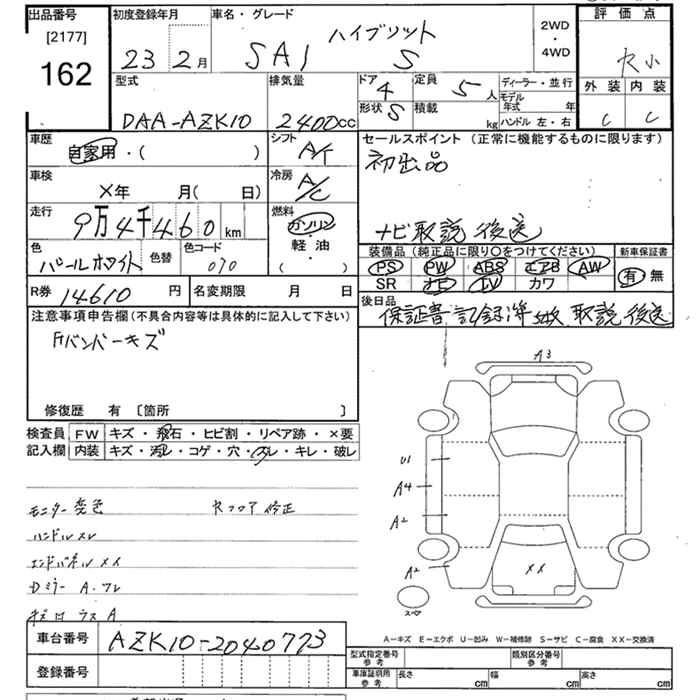 出品番号 初度登録年月 車名・グレード 2WD・4WD 評価点
[2177] ハイブリット
162 23 2月 SAI S
型式 排気量 ドア 4 定員 5人 ディーラー・並行 外装 内装
DAA-AZK10 2400cc 形状 S 積載 kg モデル年式 年 C C
ハンドル 左・右
車歴 自家用・( ) シフト A/T セールスポイント (正常に機能するものに限ります)
初出品
車検 ×年 月( 日) 冷房 A/C
走行 9万4千460km 燃料 ガソリン・軽油・( ) ナビ取説後送
色 パールホワイト 色替 色コード 070 装備品 (純正品に限り○をつけてください) 新車保証書
PS PW ABS エアB AW 有 無
SR ナビ TV カワ
R券 14610円 名変期限 月 日 後日品
保証書 記録簿 取説 後送
注意事項申告欄(不具合内容等は具体的に記入して下さい)
Fバンパーキズ
修復歴 有 〔箇所 〕
検査員記入欄 FW キズ・飛石・ヒビ割・リペア跡・×要
内装 キズ・汚レ・コゲ・穴・スレ・キレ・破レ
モニター変色
ハンドルスレ
A3
U1
A4
A2
A2
XX
スペア
A-キズ E-エクボ U-凹み W-補修跡 S-サビ C-腐食 XX-交換済
車台番号 AZK10-2040773
登録番号
型式指定番号 参考 類別区分番号 参考
車庫証明用 参考 長さ cm 幅 cm 高さ cm